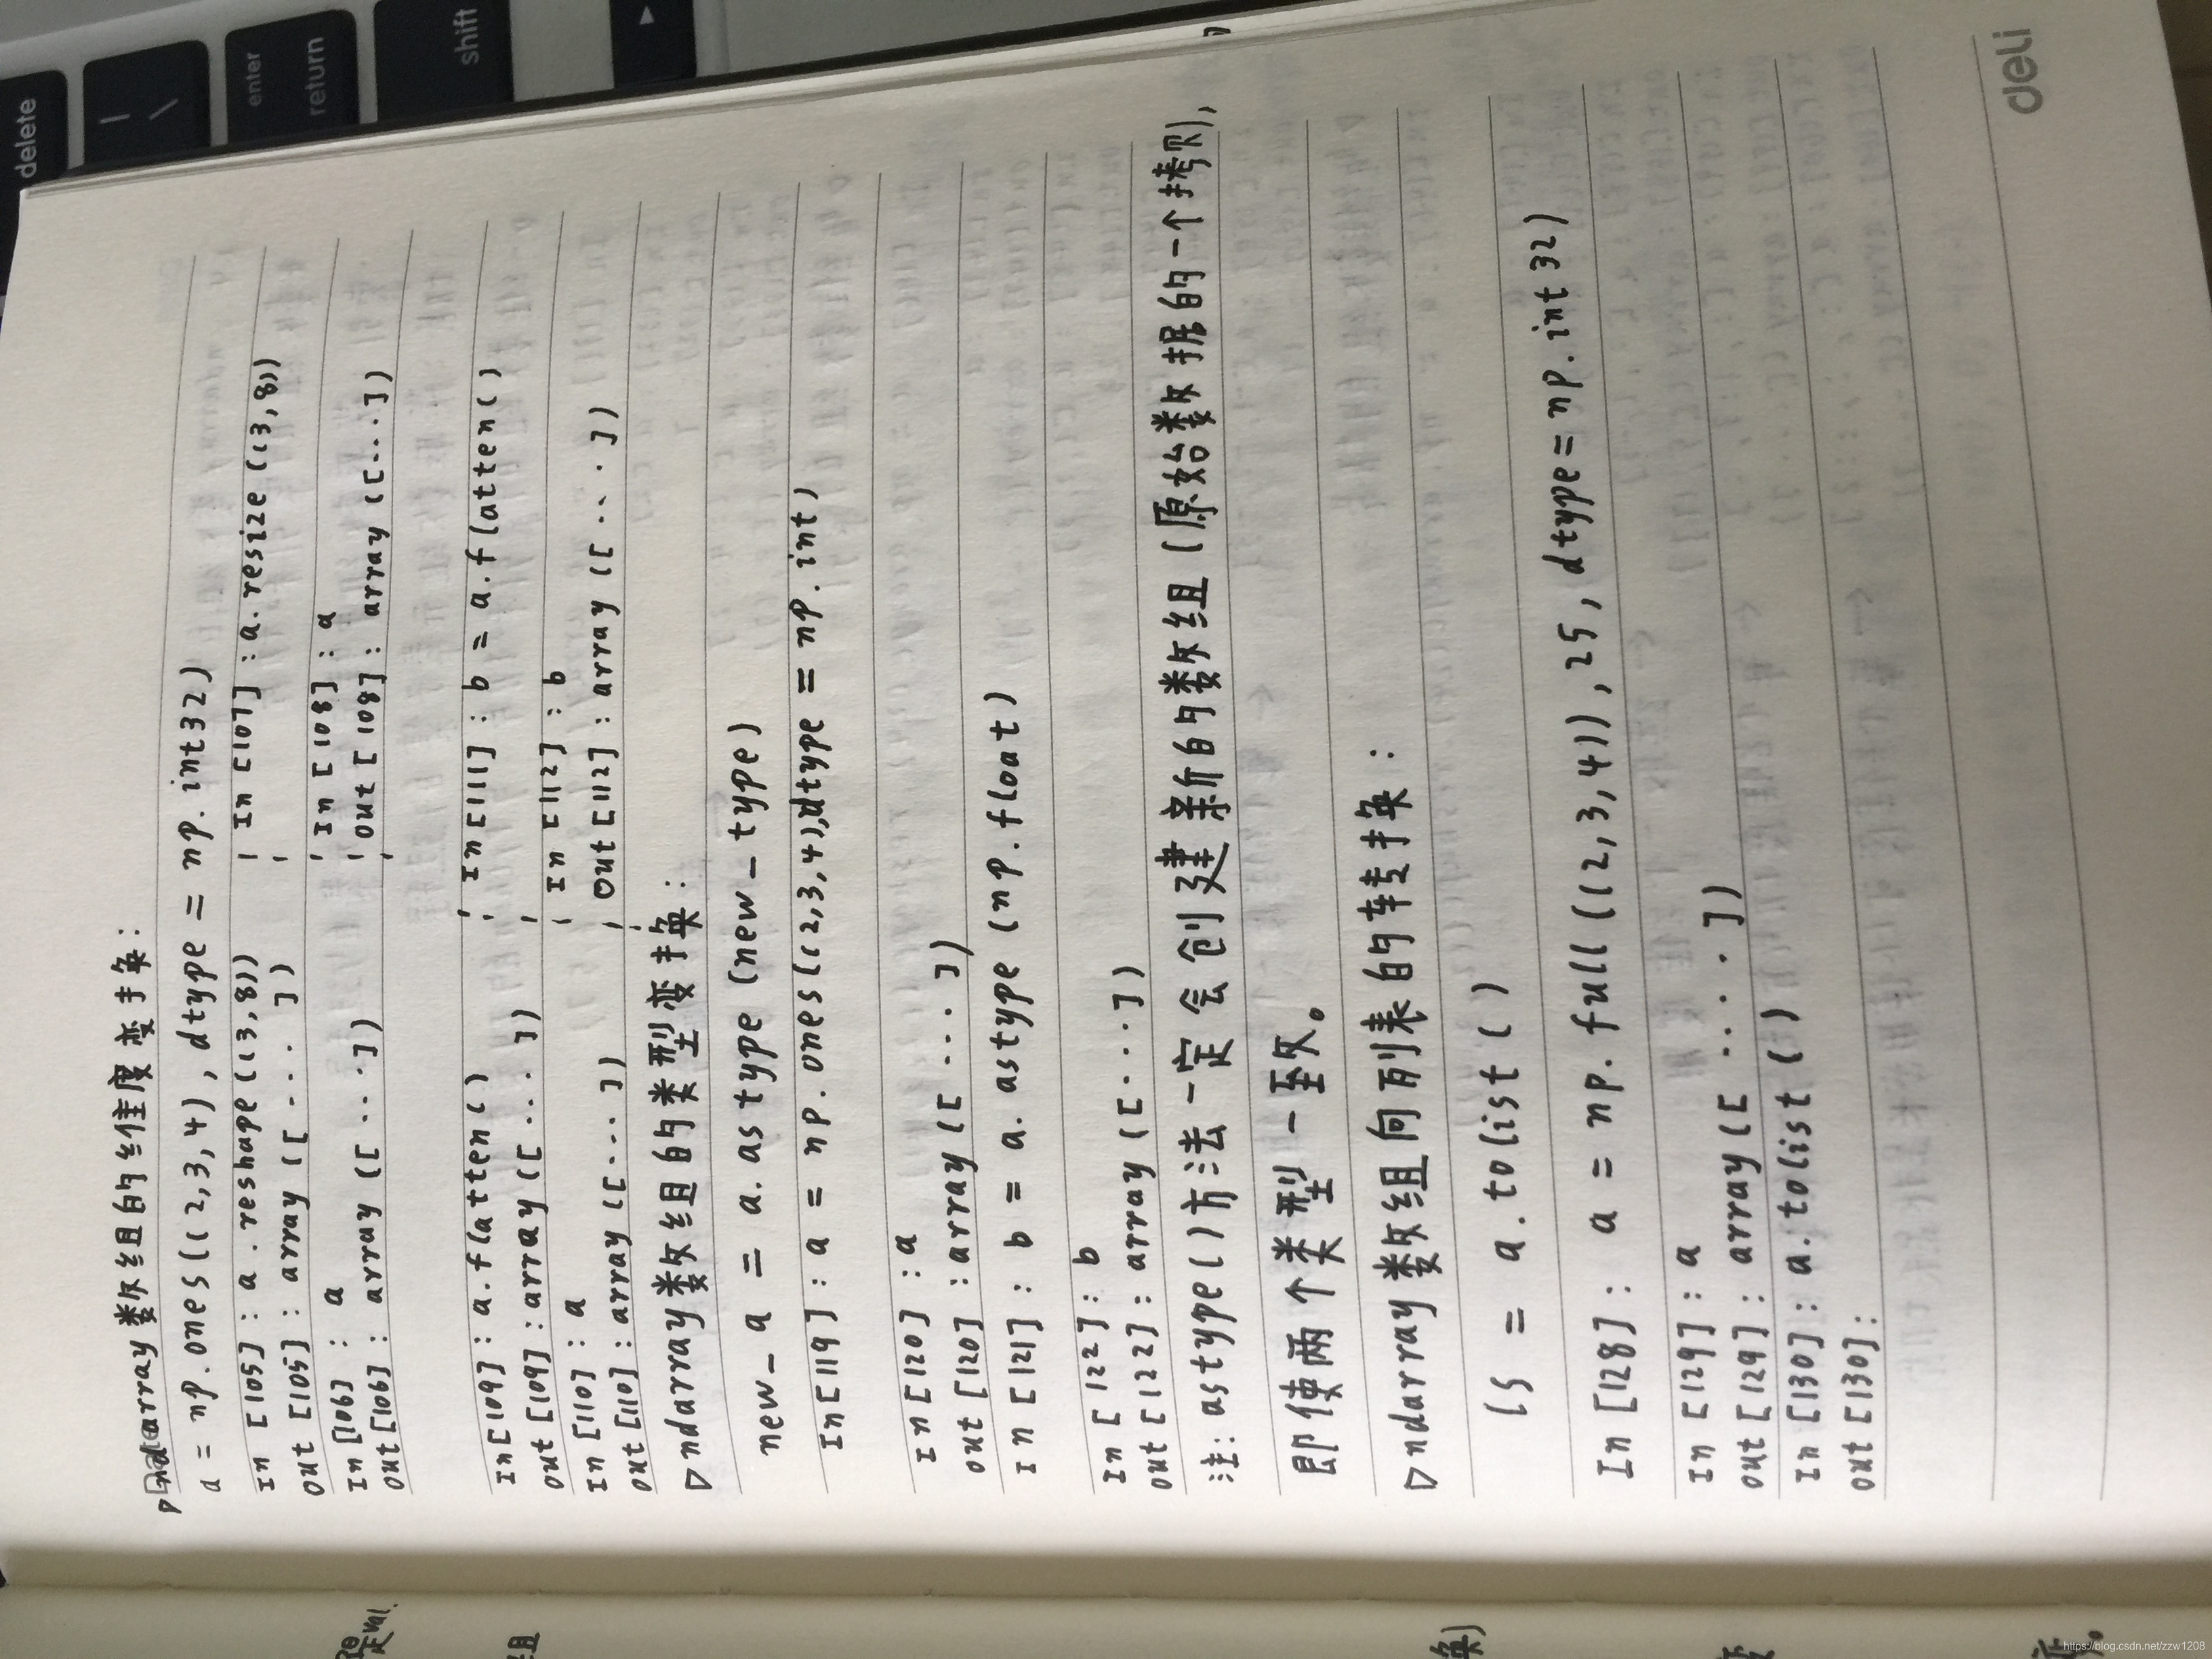 ▷ndarray数组的维度变换：
a = np.ones((2,3,4), dtype = np.int32)
In [105] : a.reshape((3,8))
out [105] : array ([ ... ])
In [106] : a
out [106] : array ([ ... ])
In [107] : a.resize((3,8))
In [108] : a
out [108] : array ([...])
In [109] : a.flatten()
out [109] : array ([ ... ])
In [110] : a
out [110] : array ([....])
In [111] : b = a.flatten()
In [112] : b
out [112] : array ([ .... ])
▷ndarray数组的类型变换：
new_a = a.astype (new_type)
In [119] : a = np.ones((2,3,4),dtype = np.int)
In [120] : a
out [120] : array ([ .... ])
In [121] : b = a.astype (np.float)
In [122] : b
out [122] : array ([....])
注：astype()方法一定会创建新的数组（原始数据的一个拷贝），
即使两个类型一致。
▷ndarray数组向列表的转换：
ls = a.tolist()
In [128] : a = np.full((2,3,4)), 25, dtype = np.int32)
In [129] : a
out [129] : array ([ .... ])
In [130] : a.tolist()
out [130] :
deli
delete
|
\
enter
return
shift
组
换)
https://blog.csdn.net/zzw1208